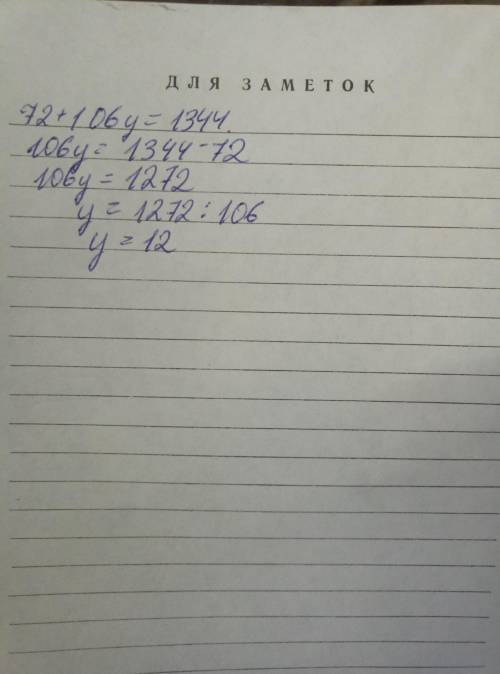 ДЛЯ ЗАМЕТОК
72+106y=1344.
106y=1344-72
106y=1272
y=1272:106
y=12